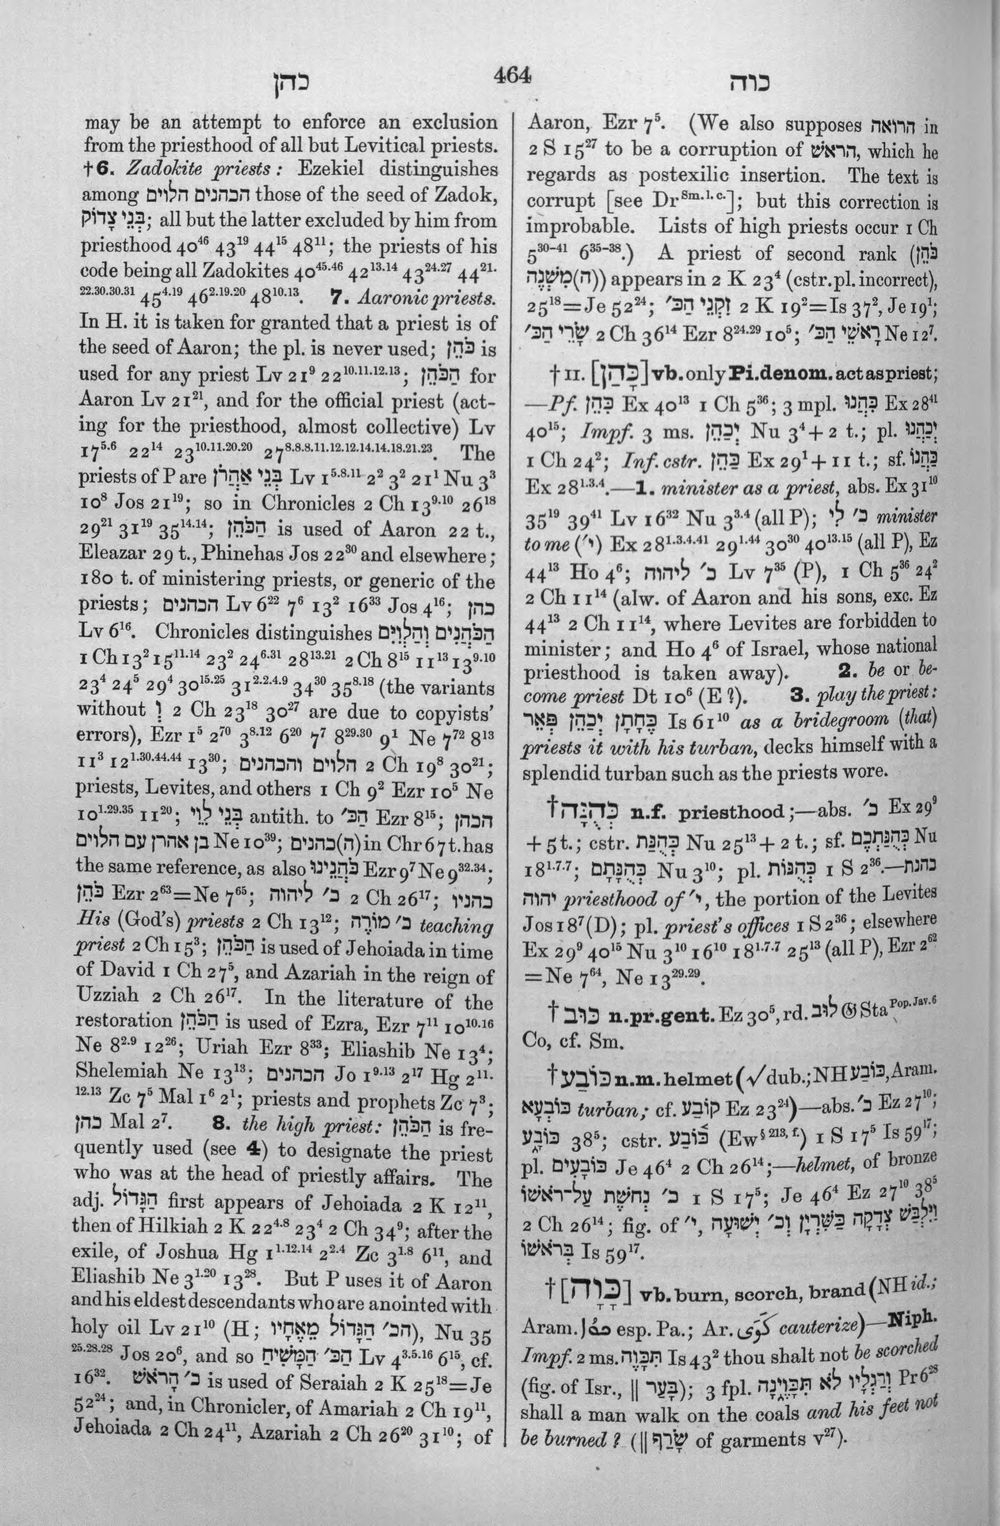 כהן
464
כוה
may be an attempt to enforce an exclusion
from the priesthood of all but Levitical priests.
†6. Zadokite priests: Ezekiel distinguishes
among הכהנים הלוים those of the seed of Zadok,
בְּנֵי צָדוֹק; all but the latter excluded by him from
priesthood 40⁴⁶ 43¹⁹ 44¹⁵ 48¹¹; the priests of his
code being all Zadokites 40⁴⁵·⁴⁶ 42¹³·¹⁴ 43²⁴·²⁷ 44²¹·
²²·³⁰·³⁰·³¹ 45⁴·¹⁹ 46²·¹⁹·²⁰ 48¹⁰·¹³. 7. Aaronic priests.
In H. it is taken for granted that a priest is of
the seed of Aaron; the pl. is never used; כֹּהֵן is
used for any priest Lv 21⁹ 22¹⁰·¹¹·¹²·¹³; הַכֹּהֵן for
Aaron Lv 21²¹, and for the official priest (act-
ing for the priesthood, almost collective) Lv
17⁵·⁶ 22¹⁴ 23¹⁰·¹¹·²⁰·²⁰ 27⁸·⁸·⁸·¹¹·¹²·¹²·¹⁴·¹⁴·¹⁸·²¹·²³. The
priests of P are בְּנֵי אַהֲרֹן Lv 1⁵·⁸·¹¹ 2² 3² 21¹ Nu 3³
10⁸ Jos 21¹⁹; so in Chronicles 2 Ch 13⁹·¹⁰ 26¹⁸
29²¹ 31¹⁹ 35¹⁴·¹⁴; הַכֹּהֵן is used of Aaron 22 t.,
Eleazar 29 t., Phinehas Jos 22³⁰ and elsewhere;
180 t. of ministering priests, or generic of the
priests; הכהנים Lv 6²² 7⁶ 13² 16³³ Jos 4¹⁶; כהן
Lv 6¹⁶. Chronicles distinguishes הַכֹּהֲנִים וְהַלְוִיִּם
1 Ch 13² 15¹¹·¹⁴ 23² 24⁶·³¹ 28¹³·²¹ 2 Ch 8¹⁵ 11¹³ 13⁹·¹⁰
23⁴ 24⁵ 29⁴ 30¹⁵·²⁵ 31²·²·⁴·⁹ 34³⁰ 35⁸·¹⁸ (the variants
without וְ 2 Ch 23¹⁸ 30²⁷ are due to copyists'
errors), Ezr 1⁵ 2⁷⁰ 3⁸·¹² 6²⁰ 7⁷ 8²⁹·³⁰ 9¹ Ne 7⁷² 8¹³
11³ 12¹·³⁰·⁴⁴·⁴⁴ 13³⁰; הלוים והכהנים 2 Ch 19⁸ 30²¹;
priests, Levites, and others 1 Ch 9² Ezr 10⁵ Ne
10¹·²⁹·³⁵ 11²⁰; בְּנֵי לֵוִי antith. to הַכּ׳ Ezr 8¹⁵; הכהן
בן אהרן עם הלוים Ne 10³⁹; (ה)כהנים in Chr 67 t. has
the same reference, as also כֹּהֲנֵינוּ Ezr 9⁷ Ne 9³²·³⁴;
כֹּהֵן Ezr 2⁶³=Ne 7⁶⁵; כ׳ ליהוה 2 Ch 26¹⁷; כהניו
His (God's) priests 2 Ch 13¹²; כ׳ מוֹרֶה teaching
priest 2 Ch 15³; הַכֹּהֵן is used of Jehoiada in time
of David 1 Ch 27⁵, and Azariah in the reign of
Uzziah 2 Ch 26¹⁷. In the literature of the
restoration הַכֹּהֵן is used of Ezra, Ezr 7¹¹ 10¹⁰·¹⁶
Ne 8²·⁹ 12²⁶; Uriah Ezr 8³³; Eliashib Ne 13⁴;
Shelemiah Ne 13¹³; הכהנים Jo 1⁹·¹³ 2¹⁷ Hg 2¹¹·
¹²·¹³ Zc 7⁵ Mal 1⁶ 2¹; priests and prophets Zc 7³;
כהן Mal 2⁷. 8. the high priest: הַכֹּהֵן is fre-
quently used (see 4) to designate the priest
who was at the head of priestly affairs. The
adj. הַגָּדוֹל first appears of Jehoiada 2 K 12¹¹,
then of Hilkiah 2 K 22⁴·⁸ 23⁴ 2 Ch 34⁹; after the
exile, of Joshua Hg 1¹·¹²·¹⁴ 2²·⁴ Zc 3¹·⁸ 6¹¹, and
Eliashib Ne 3¹·²⁰ 13²⁸. But P uses it of Aaron
and his eldest descendants who are anointed with
holy oil Lv 21¹⁰ (H; הכ׳ הַגָּדוֹל מֵאֶחָיו), Nu 35
²⁵·²⁸·²⁸ Jos 20⁶, and so הַכּ׳ הַמָּשִׁיחַ Lv 4³·⁵·¹⁶ 6¹⁵, cf.
16³². כ׳ הָרֹאשׁ is used of Seraiah 2 K 25¹⁸=Je
52²⁴; and, in Chronicler, of Amariah 2 Ch 19¹¹,
Jehoiada 2 Ch 24¹¹, Azariah 2 Ch 26²⁰ 31¹⁰; of
Aaron, Ezr 7⁵. (We also supposes הרואה in
2 S 15²⁷ to be a corruption of הראשׁ, which he
regards as postexilic insertion. The text is
corrupt [see Dr Sm. l. c.]; but this correction is
improbable. Lists of high priests occur 1 Ch
5³⁰⁻⁴¹ 6³⁵⁻³⁸.) A priest of second rank (כֹּהֵן
(ה)מִשְׁנֶה) appears in 2 K 23⁴ (cstr. pl. incorrect),
25¹⁸=Je 52²⁴; זִקְנֵי הַכּ׳ 2 K 19²=Is 37², Je 19¹;
שָׂרֵי הַכּ׳ 2 Ch 36¹⁴ Ezr 8²⁴·²⁹ 10⁵; רָאשֵׁי הַכּ׳ Ne 12⁷.
†II. [כָּהַן] vb. only Pi. denom. act as priest;
—Pf. כִּהֵן Ex 40¹³ 1 Ch 5³⁶; 3 mpl. כִּהֲנוּ Ex 28⁴¹
40¹⁵; Impf. 3 ms. יְכַהֵן Nu 3⁴+2 t.; pl. יְכַהֲנוּ
1 Ch 24²; Inf. cstr. כַּהֵן Ex 29¹+11 t.; sf. כַּהֲנוֹ
Ex 28¹·³·⁴.—1. minister as a priest, abs. Ex 31¹⁰
35¹⁹ 39⁴¹ Lv 16³² Nu 3³·⁴ (all P); כ׳ לִי minister
to me (י׳) Ex 28¹·³·⁴·⁴¹ 29¹·⁴⁴ 30³⁰ 40¹³·¹⁵ (all P), Ez
44¹³ Ho 4⁶; כ׳ ליהוה Lv 7³⁵ (P), 1 Ch 5³⁶ 24²
2 Ch 11¹⁴ (alw. of Aaron and his sons, exc. Ez
44¹³ 2 Ch 11¹⁴, where Levites are forbidden to
minister; and Ho 4⁶ of Israel, whose national
priesthood is taken away). 2. be or be-
come priest Dt 10⁶ (E?). 3. play the priest:
כֶּחָתָן יְכַהֵן פְּאֵר Is 61¹⁰ as a bridegroom (that)
priests it with his turban, decks himself with a
splendid turban such as the priests wore.
†כְּהֻנָּה n.f. priesthood;—abs. כ׳ Ex 29⁹
+5 t.; cstr. כְּהֻנַּת Nu 25¹³+2 t.; sf. כְּהֻנַּתְכֶם Nu
18¹·⁷·⁷; כְּהֻנָּתָם Nu 3¹⁰; pl. כְּהֻנּוֹת 1 S 2³⁶.—כהנת
יהוה priesthood of י׳, the portion of the Levites
Jos 18⁷ (D); pl. priest's offices 1 S 2³⁶; elsewhere
Ex 29⁹ 40¹⁵ Nu 3¹⁰ 16¹⁰ 18¹·⁷·⁷ 25¹³ (all P), Ezr 2⁶²
=Ne 7⁶⁴, Ne 13²⁹·²⁹.
†כּוּב n.pr.gent. Ez 30⁵, rd. לוּב 𝔊 Sta Pop. Jav. 6
Co, cf. Sm.
†כּוֹבַע n.m. helmet (√dub.; NH כּוֹבַע, Aram.
כּוֹבְעָא turban; cf. קוֹבַע Ez 23²⁴)—abs. כ׳ Ez 27¹⁰;
כּוֹבָע 38⁵; cstr. כּוֹבַע (Ew § 213, f.) 1 S 17⁵ Is 59¹⁷;
pl. כּוֹבָעִים Je 46⁴ 2 Ch 26¹⁴;—helmet, of bronze
כ׳ נְחשֶׁת עַל־רֹאשׁוֹ 1 S 17⁵; Je 46⁴ Ez 27¹⁰ 38⁵
2 Ch 26¹⁴; fig. of י׳, וַיִּלְבַּשׁ צְדָקָה כַּשִּׁרְיָן וְכ׳ יְשׁוּעָה
בְּרֹאשׁוֹ Is 59¹⁷.
†[כָּוָה] vb. burn, scorch, brand (NH id.;
Aram. ܟܘܐ esp. Pa.; Ar. كَوَى cauterize)—Niph.
Impf. 2 ms. תִּכָּוֶה Is 43² thou shalt not be scorched
(fig. of Isr., ‖ בָּעַר); 3 fpl. וְרַגְלָיו לֹא תִּכָּוֶינָה Pr 6²⁸
shall a man walk on the coals and his feet not
be burned? (‖ שָׂרַף of garments v²⁷).